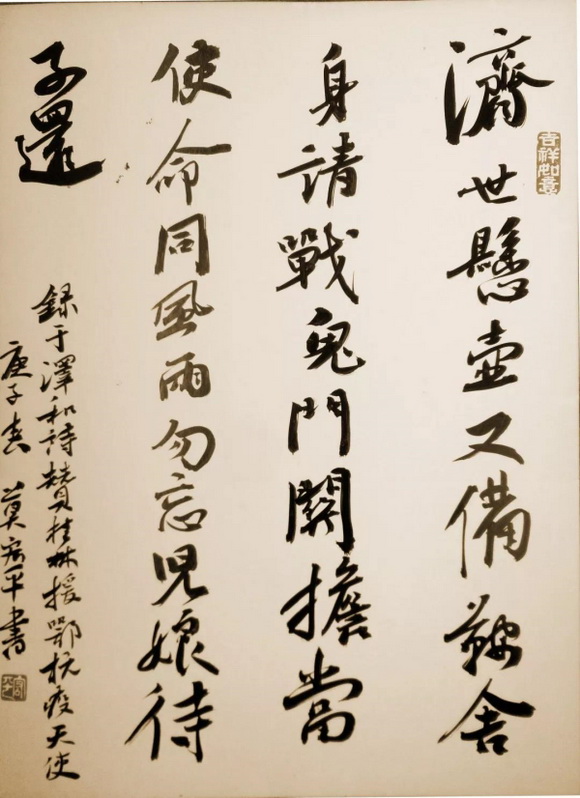 吉祥如意
濟世懸壺又備鞍舍
身請戰鬼門關擔當
使命同風雨勿忘兒娘待
子還
録于澤和詩贊桂林援鄂抗疫天使
庚子春 莫宏平書